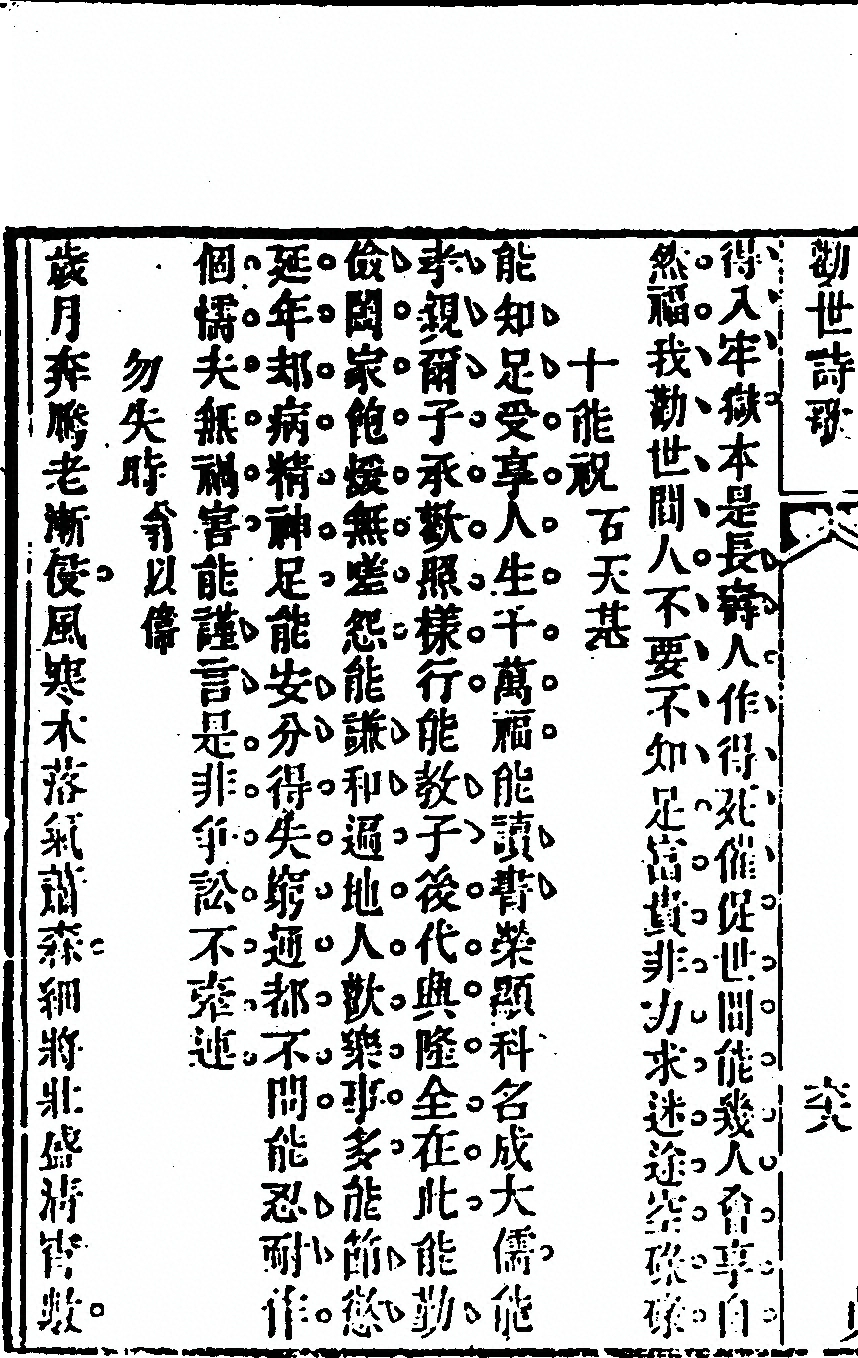 勸世詩歌
六八
得入牢獄本是長壽人作得死催促世間能幾人會享自
然福我勸世間人不要不知足富貴非力求迷途空碌碌
十能祝 石天基
能知足受享人生千萬福能讀書榮顯科名成大儒能
孝親爾子承歡照樣行能教子後代興隆全在此能勤
儉闔家飽煖無嗟怨能謙和遍地人歡樂事多能節慾
延年却病精神足能安分得失窮通都不問能忍耐作
個懦夫無禍害能謹言是非爭訟不牽連
勿失時 翁以儔
歲月奔騰老漸侵風寒木落氣蕭森細將壯盛時宵數